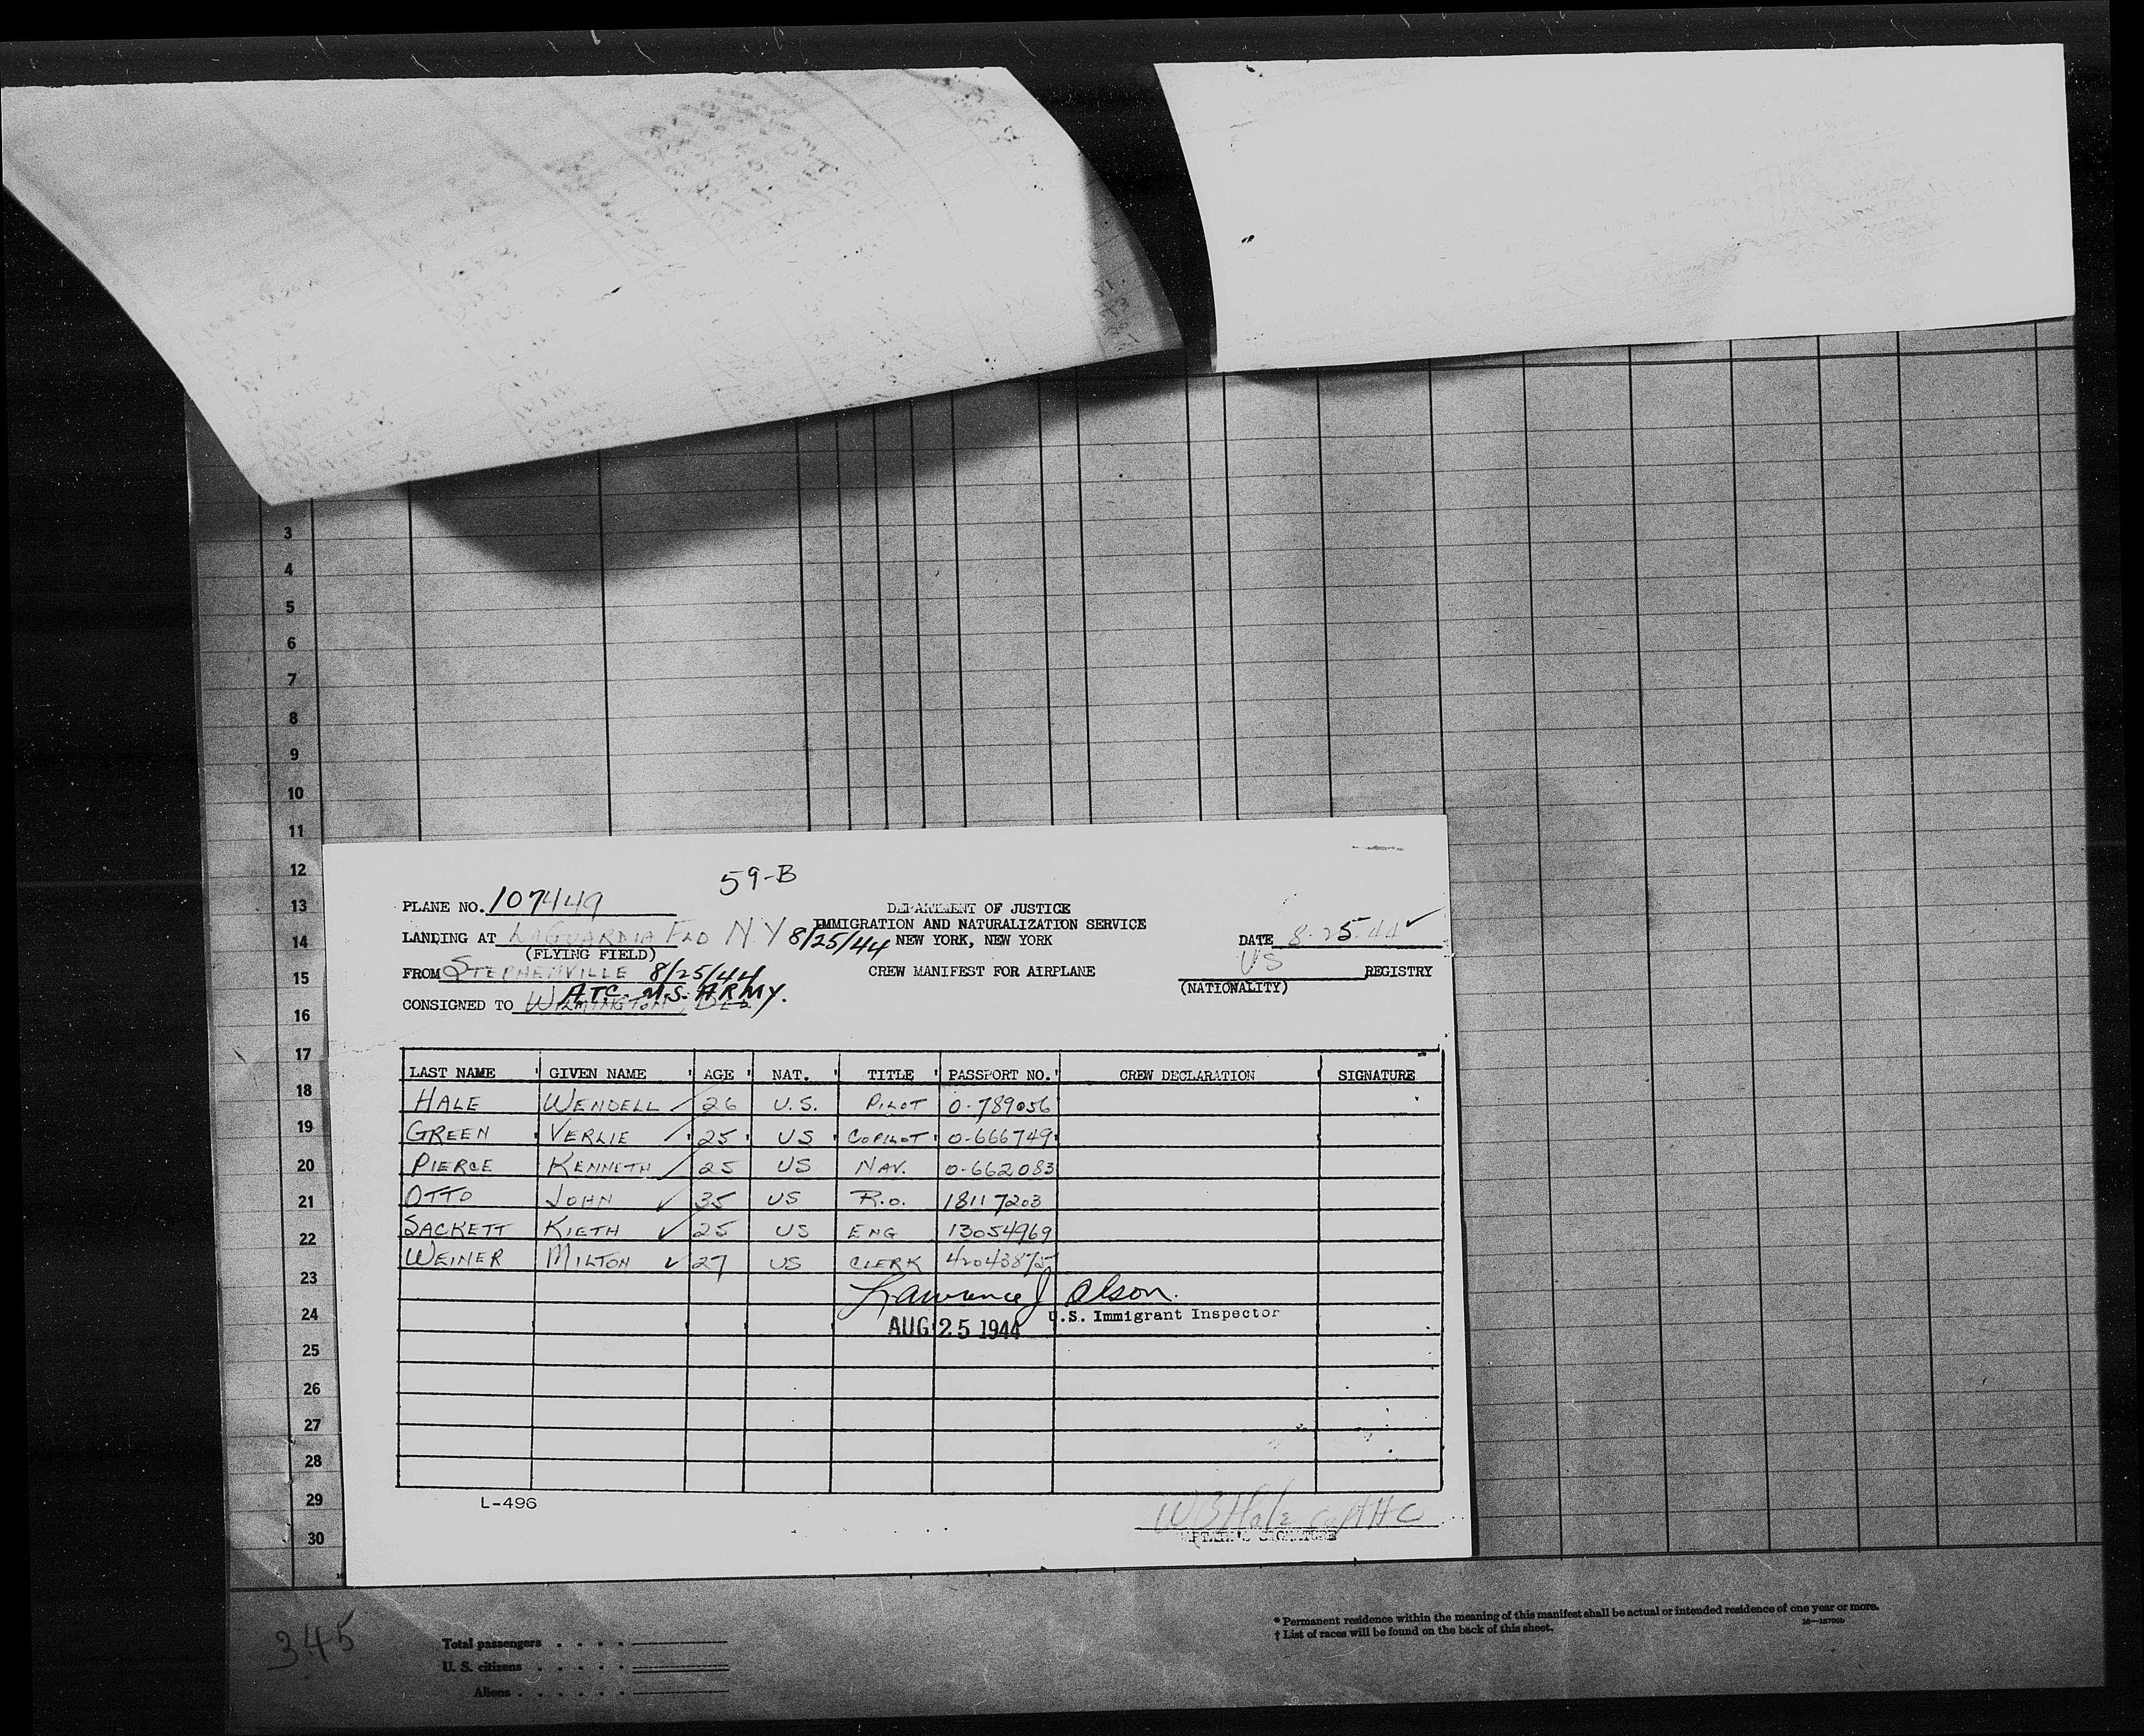 3
4
5
6
7
8
9
10
11
12
13
14
15
16
17
18
19
20
21
22
23
24
25
26
27
28
29
30
59-B
PLANE NO. 107449
DEPARTMENT OF JUSTICE
IMMIGRATION AND NATURALIZATION SERVICE
LANDING AT LAGUARDIA FLD N.Y 8/25/44 NEW YORK, NEW YORK DATE 8-25-44 ✓
(FLYING FIELD)
FROM STEPHENVILLE 8/25/44 CREW MANIFEST FOR AIRPLANE US REGISTRY
(NATIONALITY)
A.T.C. U.S. ARMY.
CONSIGNED TO WILMINGTON, DEL
LAST NAME GIVEN NAME AGE NAT. TITLE PASSPORT NO. CREW DECLARATION SIGNATURE
HALE WENDELL 26 U.S. PILOT 0-789056
GREEN VERLIE 25 US COPILOT 0-666749
PIERCE KENNETH 25 US NAV. 0-662083
OTTO JOHN ✓ 35 US R.O. 18117203
SACKETT KIETH ✓ 25 US ENG 13054969
WEINER MILTON ✓ 27 US CLERK 42043875
Lawrence J Olson.
U.S. Immigrant Inspector
AUG 25 1944
L-496
WB Hale Capt AC
CAPTAIN'S SIGNATURE
345
Total passengers
U. S. citizens
Aliens
* Permanent residence within the meaning of this manifest shall be actual or intended residence of one year or more.
† List of races will be found on the back of this sheet.